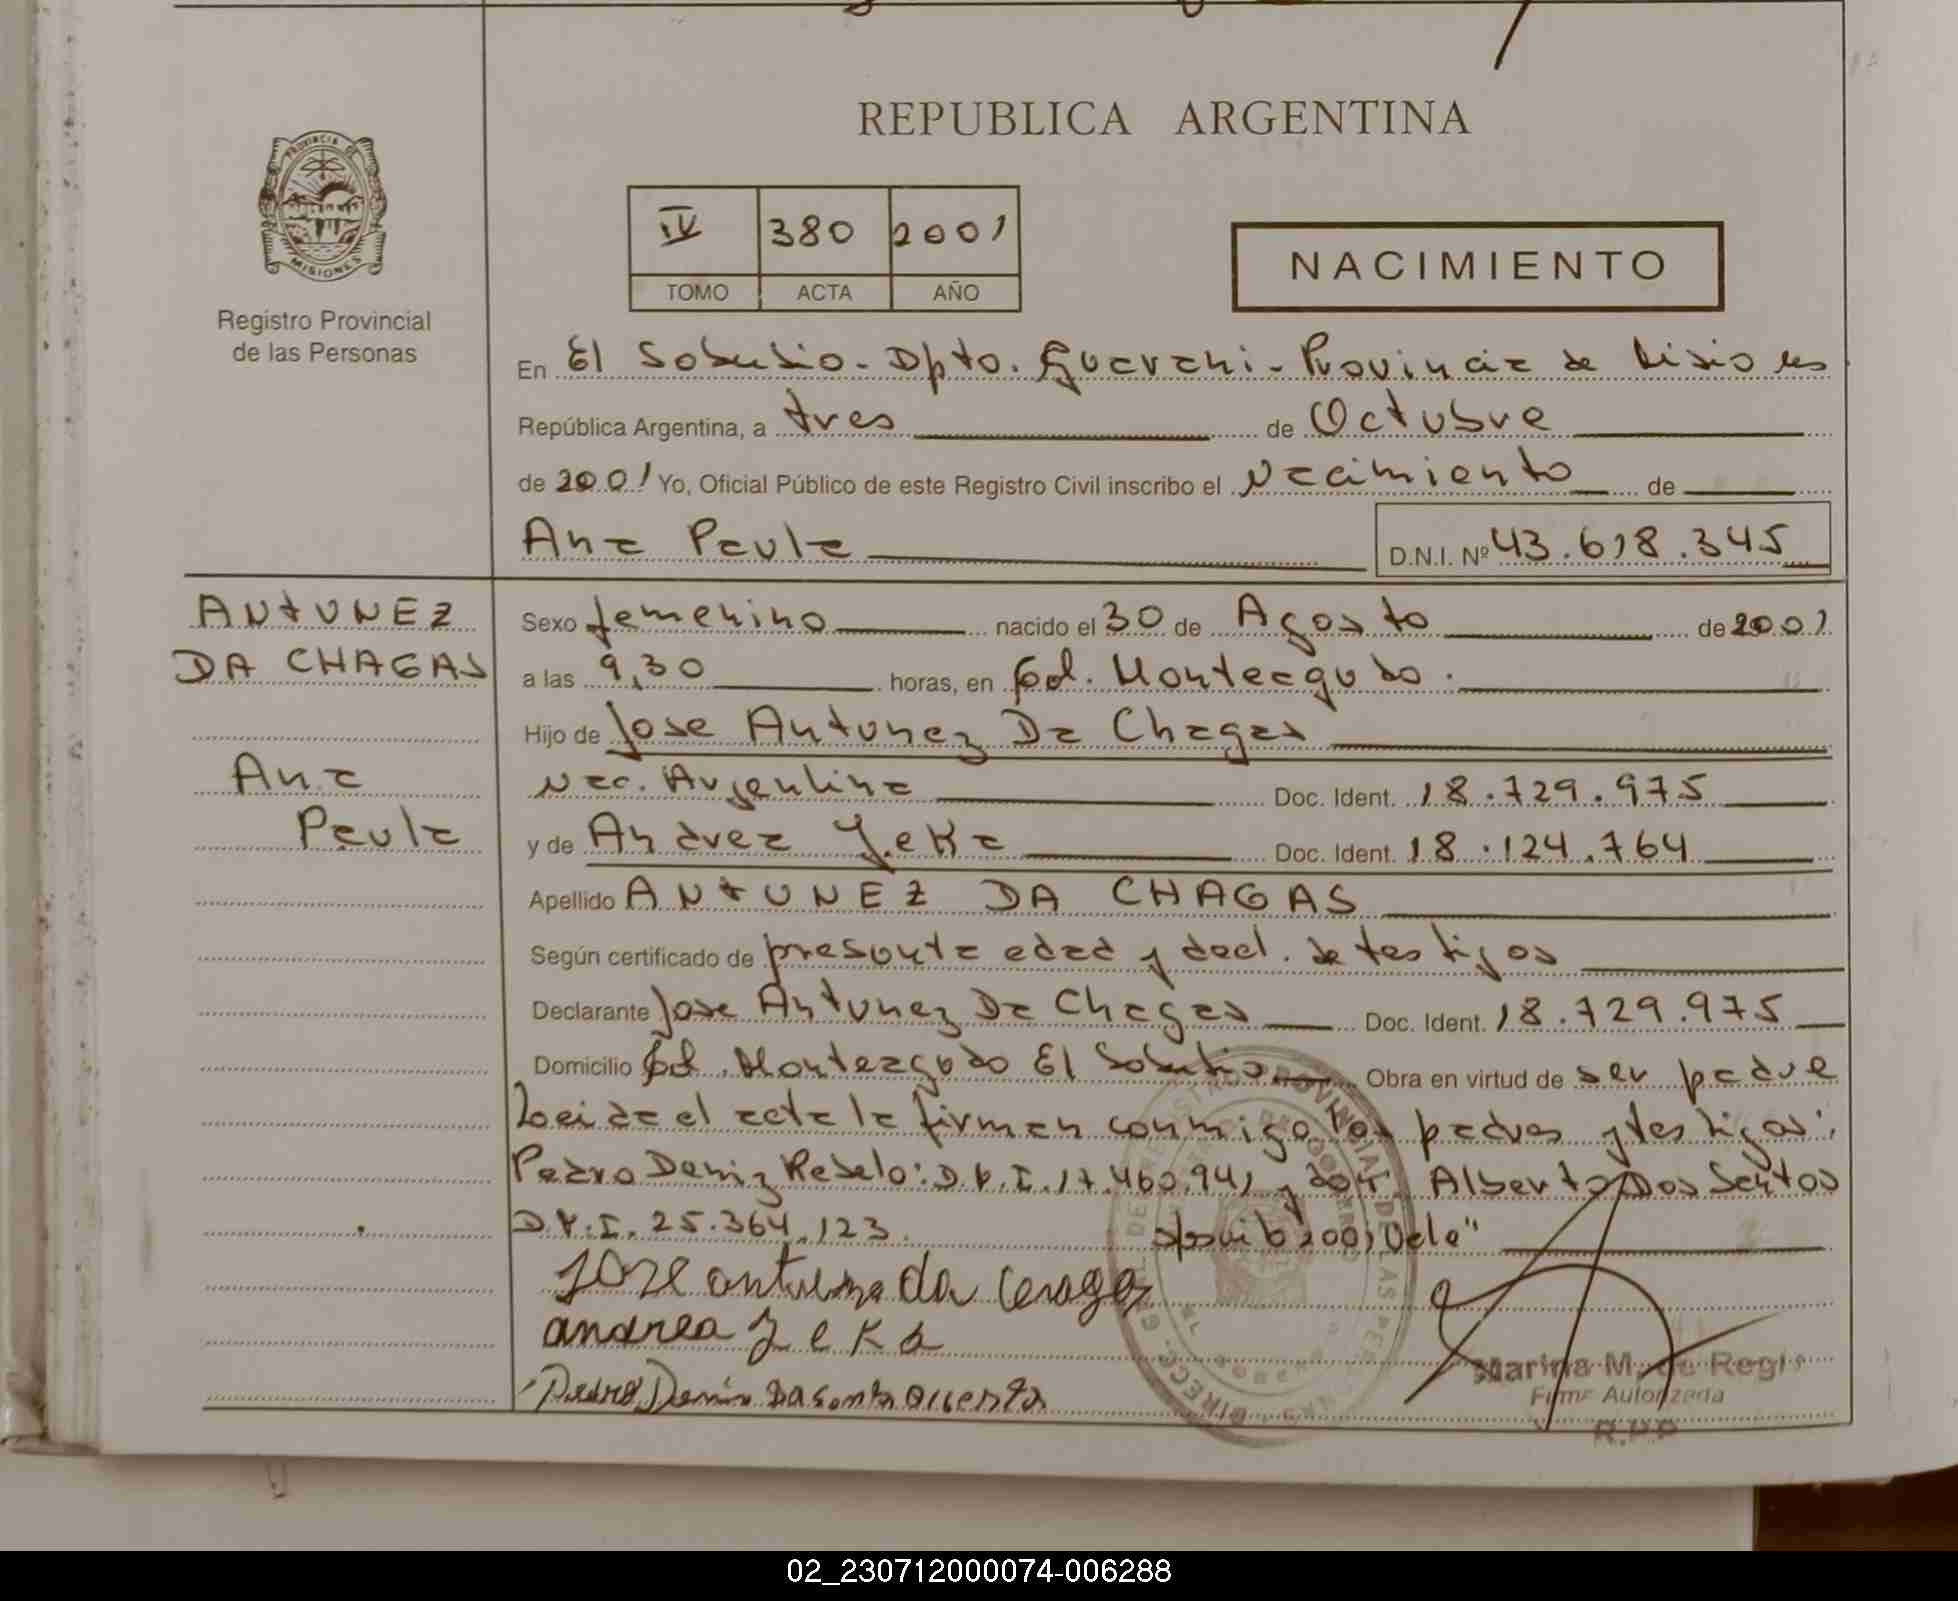 REPUBLICA ARGENTINA
PROVINCIA DE
MISIONES
Registro Provincial
de las Personas
IV 380 2001
TOMO ACTA AÑO
NACIMIENTO
En El Soberbio - Dpto. Guarani - Provincia de Misiones
República Argentina, a tres de Octubre
de 2001 Yo, Oficial Público de este Registro Civil inscribo el Nacimiento de
Ana Paula D.N.I. Nº 43.618.345
ANTUNEZ
DA CHAGAS
Ana
Paula
Sexo femenino nacido el 30 de Agosto de 2001
a las 9,30 horas, en Col. Monteagudo.
Hijo de Jose Antunez Da Chagas
Nac. Argentina Doc. Ident. 18.729.975
y de Andrea Yeka Doc. Ident. 18.124.764
Apellido ANTUNEZ DA CHAGAS
Según certificado de presunta edad y decl. de testigos
Declarante Jose Antunez Da Chagas Doc. Ident. 18.729.975
Domicilio Col. Monteagudo El Soberbio Obra en virtud de ser padre
Leida el acta la firman conmigo los padres y testigos:
Pedro Deniz Rebelo: D.N.I. 17.460.941 y don Alberto Dos Santos
D.N.I. 25.364.123. 2001 Vale"
andrea Yeka
Marina M. de Regis
Firma Autorizada
R.P.P
02_230712000074-006288